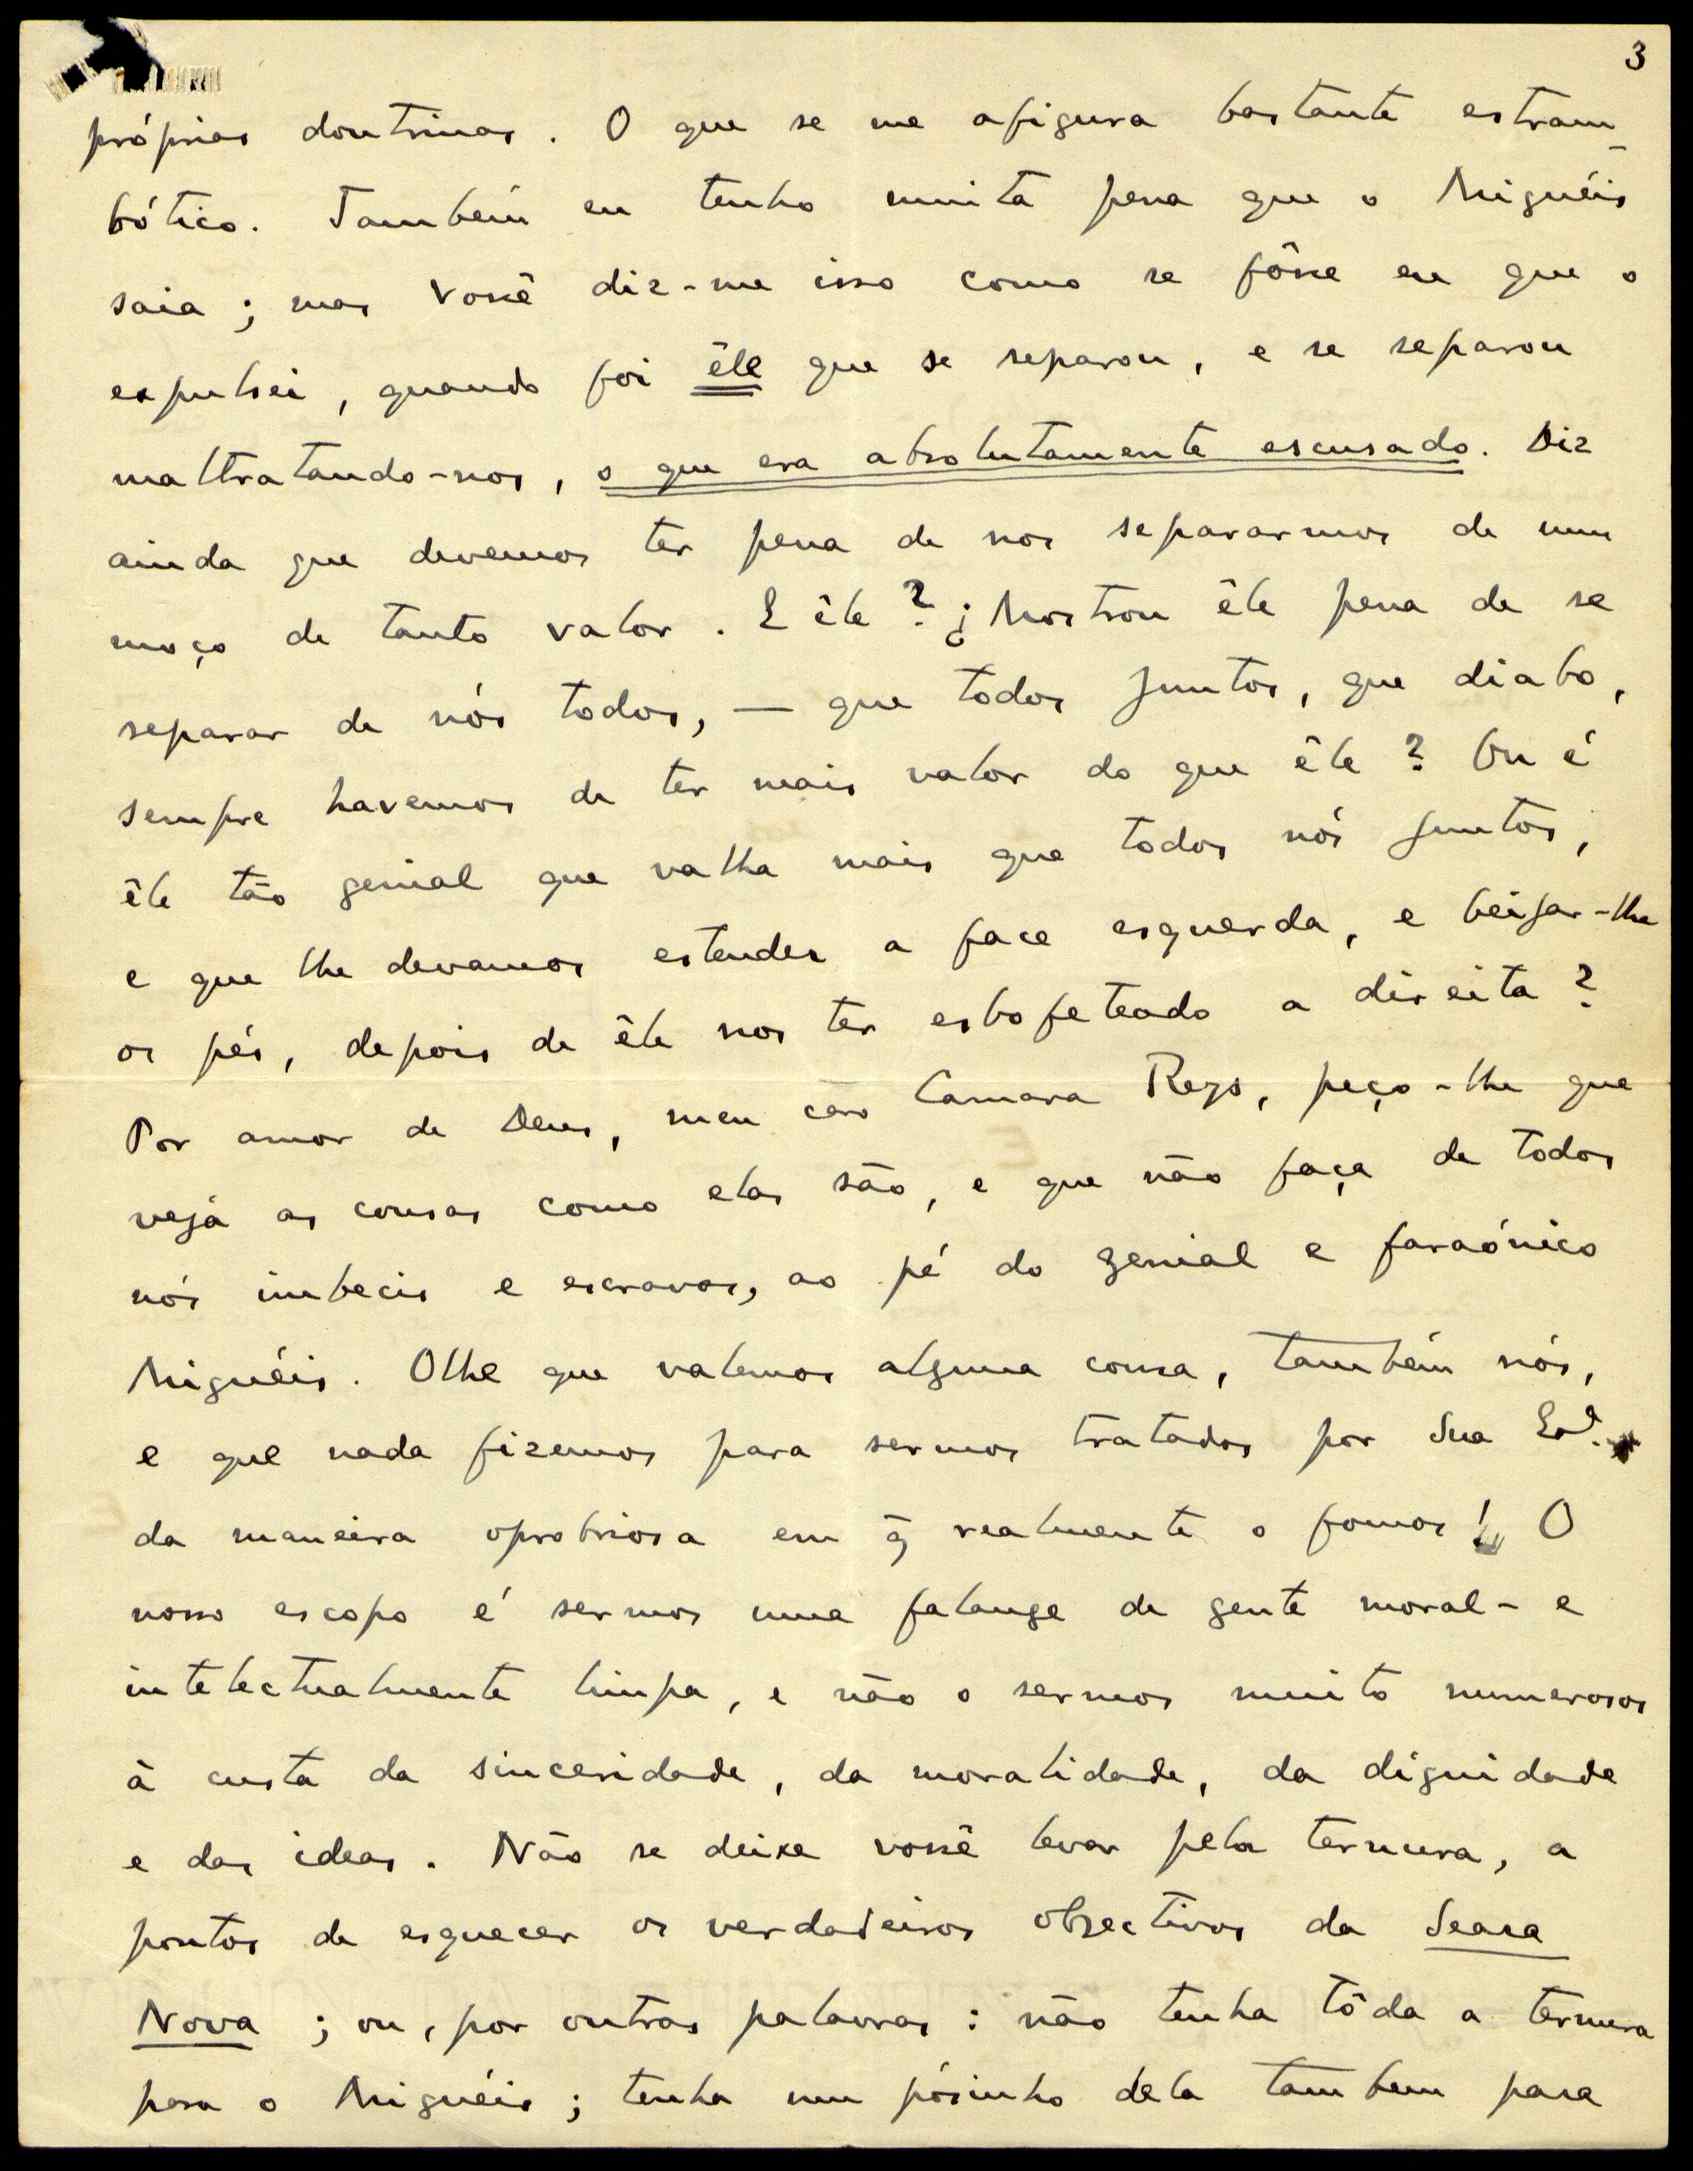 3
próprias doutrinas. O que se me afigura bastante estram-
bótico. Também eu tenho muita pena que o Miguéis
saia; mas você diz-me isso como se fôsse eu que o
expulsei, quando foi êle que se separou, e se separou
maltratando-nos, o que era absolutamente escusado. Diz
ainda que devemos ter pena de nos separarmos de um
moço de tanto valor. E êle? ¿Mostrou êle pena de se
separar de nós todos, — que todos juntos, que diabo,
sempre havemos de ter mais valor do que êle? Ou é
êle tão genial que valha mais que todos nós juntos,
e que lhe devamos estender a face esquerda, e beijar-lhe
os pés, depois de êle nos ter esbofeteado a direita?
Por amor de Deus, meu caro Camara Reys, peço-lhe que
veja as cousas como elas são, e que não faça de todos
nós imbecis e escravos, ao pé do genial e faraónico
Miguéis. Olhe que valemos alguma cousa, também nós,
e que nada fizemos para sermos tratados por Sua Exª.
da maneira oprobriosa em q̃ realmente o fomos! O
nosso escopo é sermos uma falange de gente moral- e
intelectualmente limpa, e não o sermos muito numerosos
à custa da sinceridade, da moralidade, da dignidade
e das ideas. Não se deixe você levar pela ternura, a
pontos de esquecer os verdadeiros objectivos da Seara
Nova; ou, por outras palavras: não tenha tôda a ternura
para o Miguéis; tenha um pósinho dela tambem para